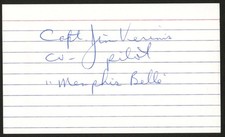 Capt Jim Verinis
co-pilot
"Memphis Belle"